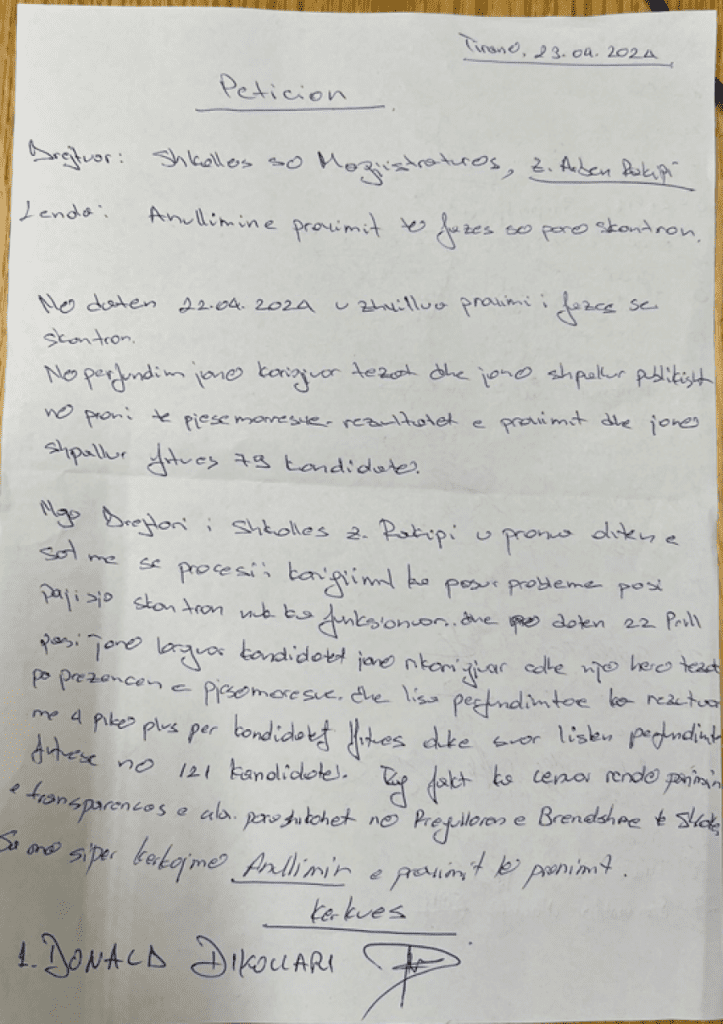 Tiranë, 23.04.2024
Peticion.
Drejtuar: Shkollës së Magjistraturës, z. Arben Rakipi
Lënda: Anullimin e provimit të fazës së parë skantron.
Në datën 22.04.2024 u zhvillua provimi i fazës së
skantron.
Në përfundim janë korigjuar tezat dhe janë shpallur publikisht
në prani të pjesëmarrësve rezultatet e provimit dhe janë
shpallur fitues 79 kandidatë.
Nga Drejtori i Shkollës z. Rakipi u pranua ditën e
sotme se procesi i korigjimit ka pasur probleme pasi
pajisja skantron nuk ka funksionuar. dhe në datën 22 Prill
pasi janë larguar kandidatët janë rikorigjuar edhe një herë tezat
pa prezencën e pjesëmarësve. dhe lista përfundimtare ka rezultuar
me 4 pikë plus për kandidatët fitues duke çuar listën përfundimt
fituese në 121 kandidatë. Ky fakt ka cenuar rëndë parimin
e transparencës e cila parashikohet në Rregulloren e Brendshme të Shkollës
Sa më sipër kërkojmë Anullimin e provimit të pranimit.
Kërkues
1. DONALD DIKOLLARI